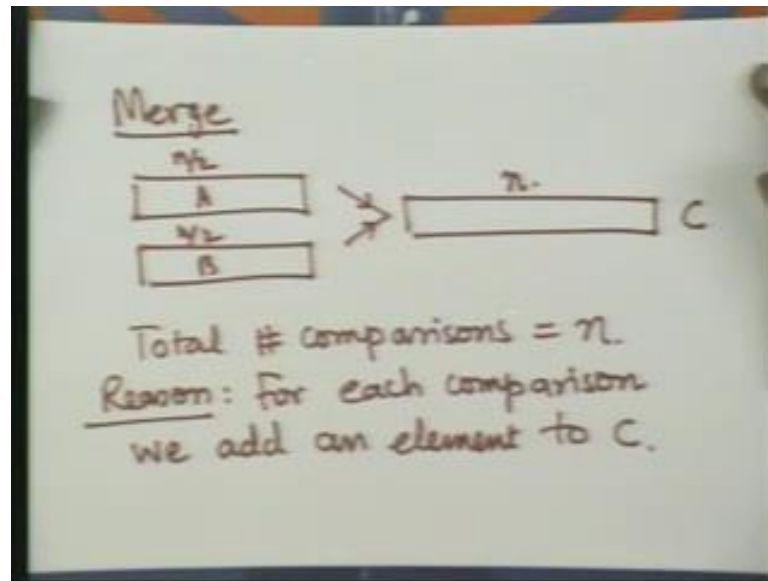 Merge
n/2
A
n.
C
n/2
B
Total # comparisons = n.
Reason: For each comparison
we add an element to C.